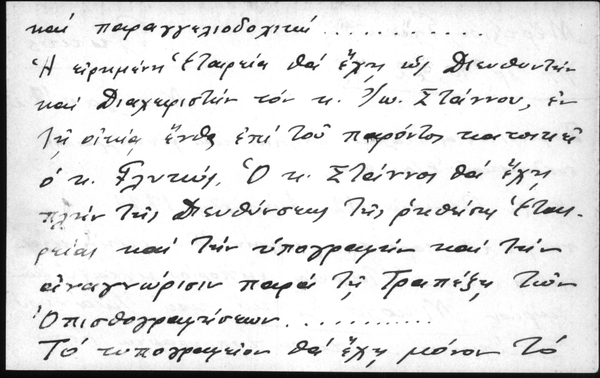 καί παραγγελιοδοχικά ............
Ἡ εἰρημένη Ἑταιρεία θά ἔχῃ ὡς Διευθυντήν
καί Διαχειριστήν τόν κ. Ἰω. Στάννον, ἐν
τῇ οἰκίᾳ ἔνθα ἐπί τοῦ παρόντος κατοικεῖ
ὁ κ. Γλυκύς. Ὁ κ. Στάννος θά ἔχῃ
πλήν τῆς Διευθύνσεως τῆς ῥηθείσης Ἑται-
ρείας καί τήν ὑπογραφήν καί τήν
ἀναγνώρισιν παρά τῇ Τραπέζῃ τῶν
Ὀπισθογραφήσεων ............
Τό τυπογραφεῖον θά ἔχῃ μόνον τό